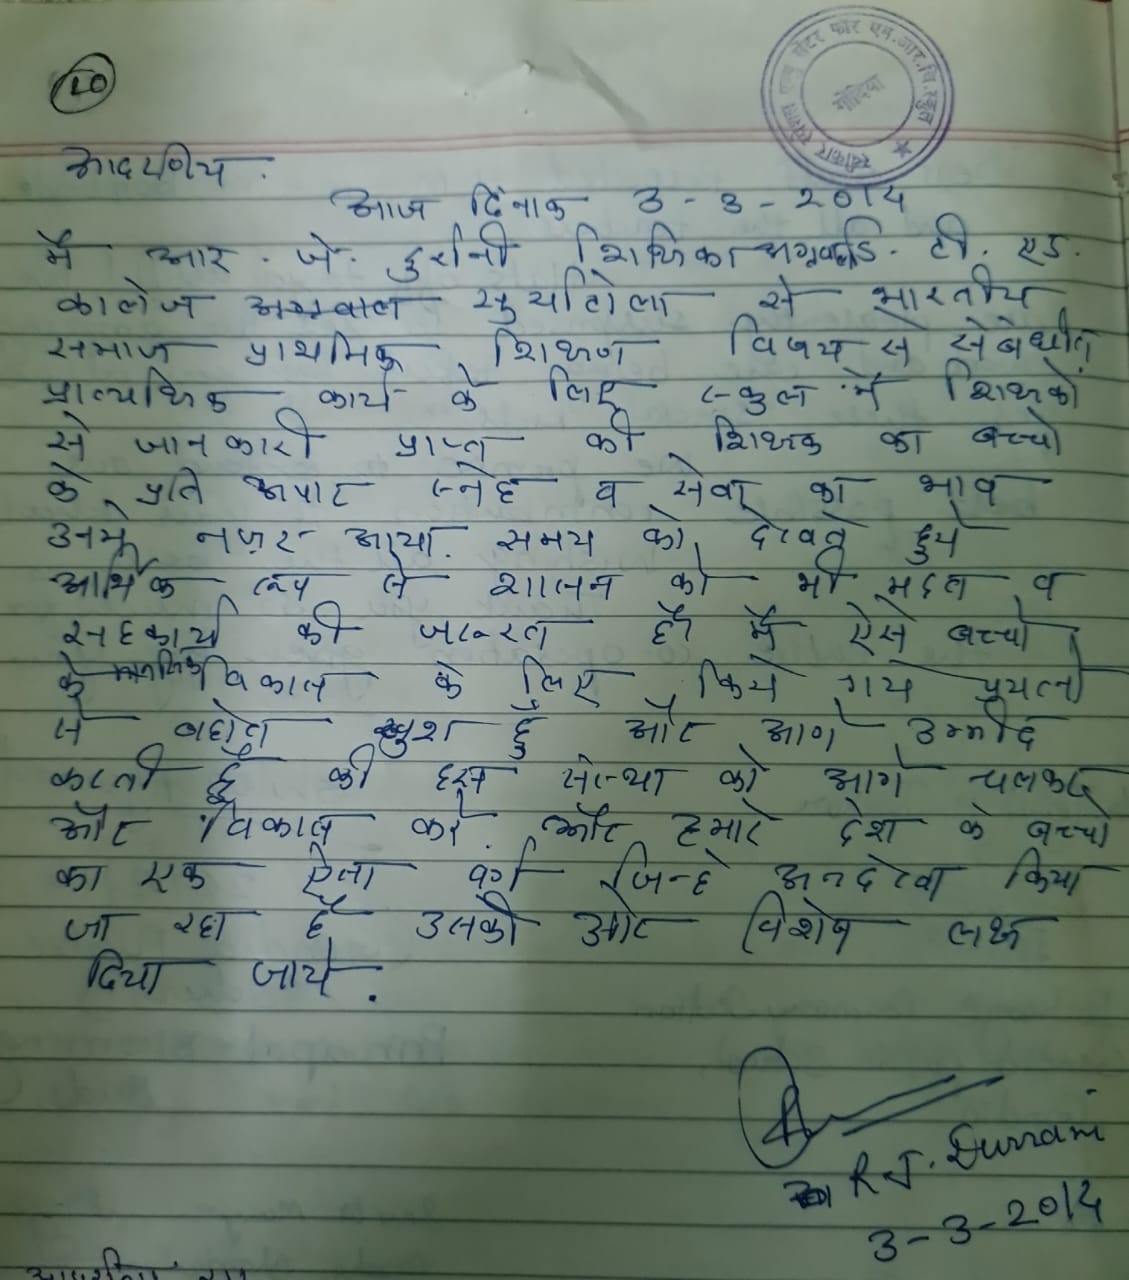 20
स्वीकार स्पेशल एन्ड सेंटर फॉर एम.आर.सि.स्कुल
गोंदिया
आदरणीय.
आज दिंनाक 3-3-2014
मै आर. जे. दुर्रानी शिक्षिका डि. टी. एड.
कालेज सुर्याटोला से भारतीय
समाज प्राथमिक शिक्षण विषय से संबंधीत
प्रात्यक्षिक कार्य के लिए स्कुल में शिक्षको
से जानकारी प्राप्त की शिक्षक का बच्चो
के प्रति अपार स्नेह व सेवा का भाव
उनमे नज़र आया. समय को देखते हुये
आर्थिक रूप से शासन को भी मदत व
सहकार्य की जरूरत है मै ऐसे बच्चो
के मानसिक विकास के लिए किये गये प्रयत्नो
से बहोत खुश हुँ और आगे उम्मीद
करती हुँ की इस संस्था को आगे चलकर
और विकास करे. और हमारे देश के बच्चो
का एक ऐसा वर्ग जिन्हे अनदेखा किया
जा रहा है उसकी ओर विशेष लक्ष
दिया जाये.
R J. Durrani
3-3-2014